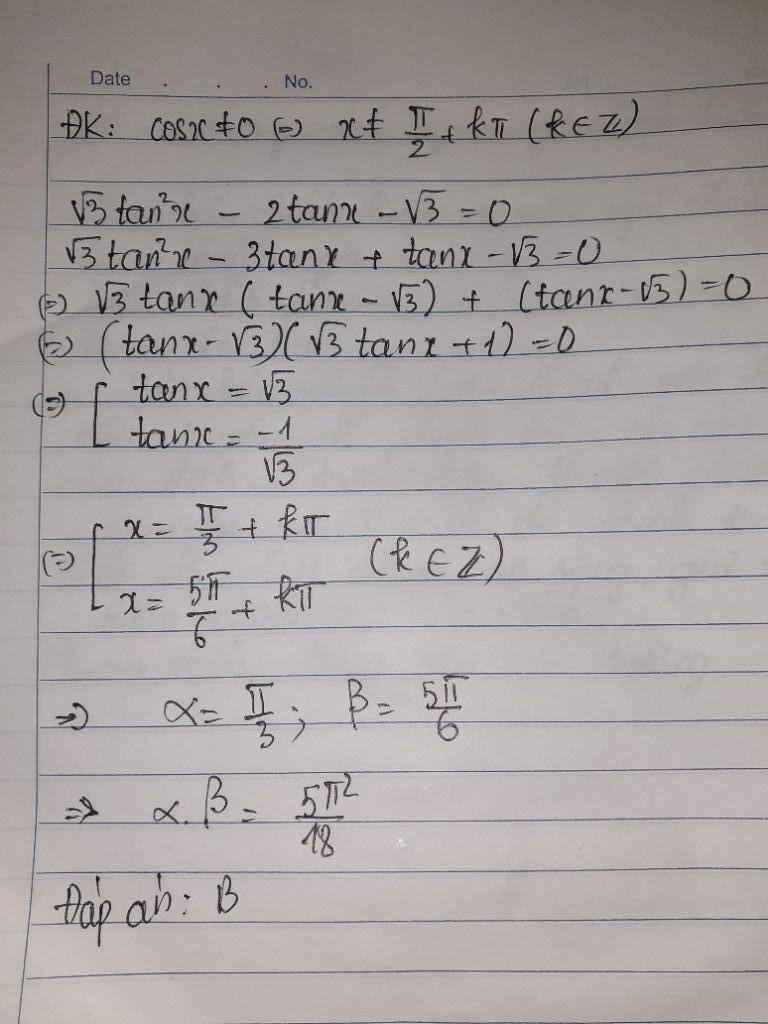 Date . . . No.
ĐK: cosx ≠ 0 (=) x ≠ π/2 + kπ (k ∈ Z)
√3 tan²x - 2tanx - √3 = 0
√3 tan²x - 3tanx + tanx - √3 = 0
(=) √3 tanx (tanx - √3) + (tanx - √3) = 0
(=) (tanx - √3)(√3 tanx + 1) = 0
(=) [ tanx = √3
tanx = -1/√3
(=) [ x = π/3 + kπ
(k ∈ Z)
x = 5π/6 + kπ
=> α = π/3 ; β = 5π/6
=> α.β = 5π²/18
Đáp án: B